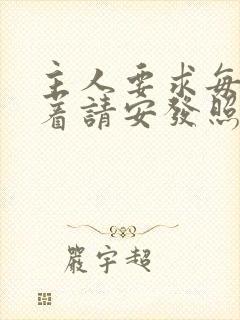 主人要求每
着請安發照
嚴宇超